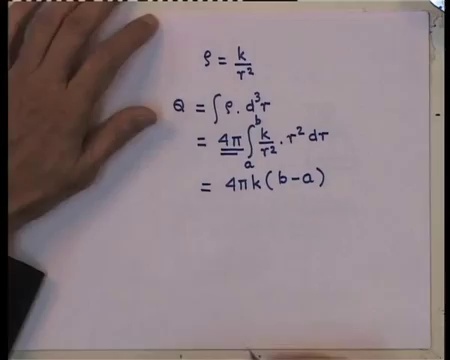 ρ = k/r²
Q = ∫ ρ. d³r
= 4π ∫ₐᵇ k/r² . r² dr
= 4πk(b-a)